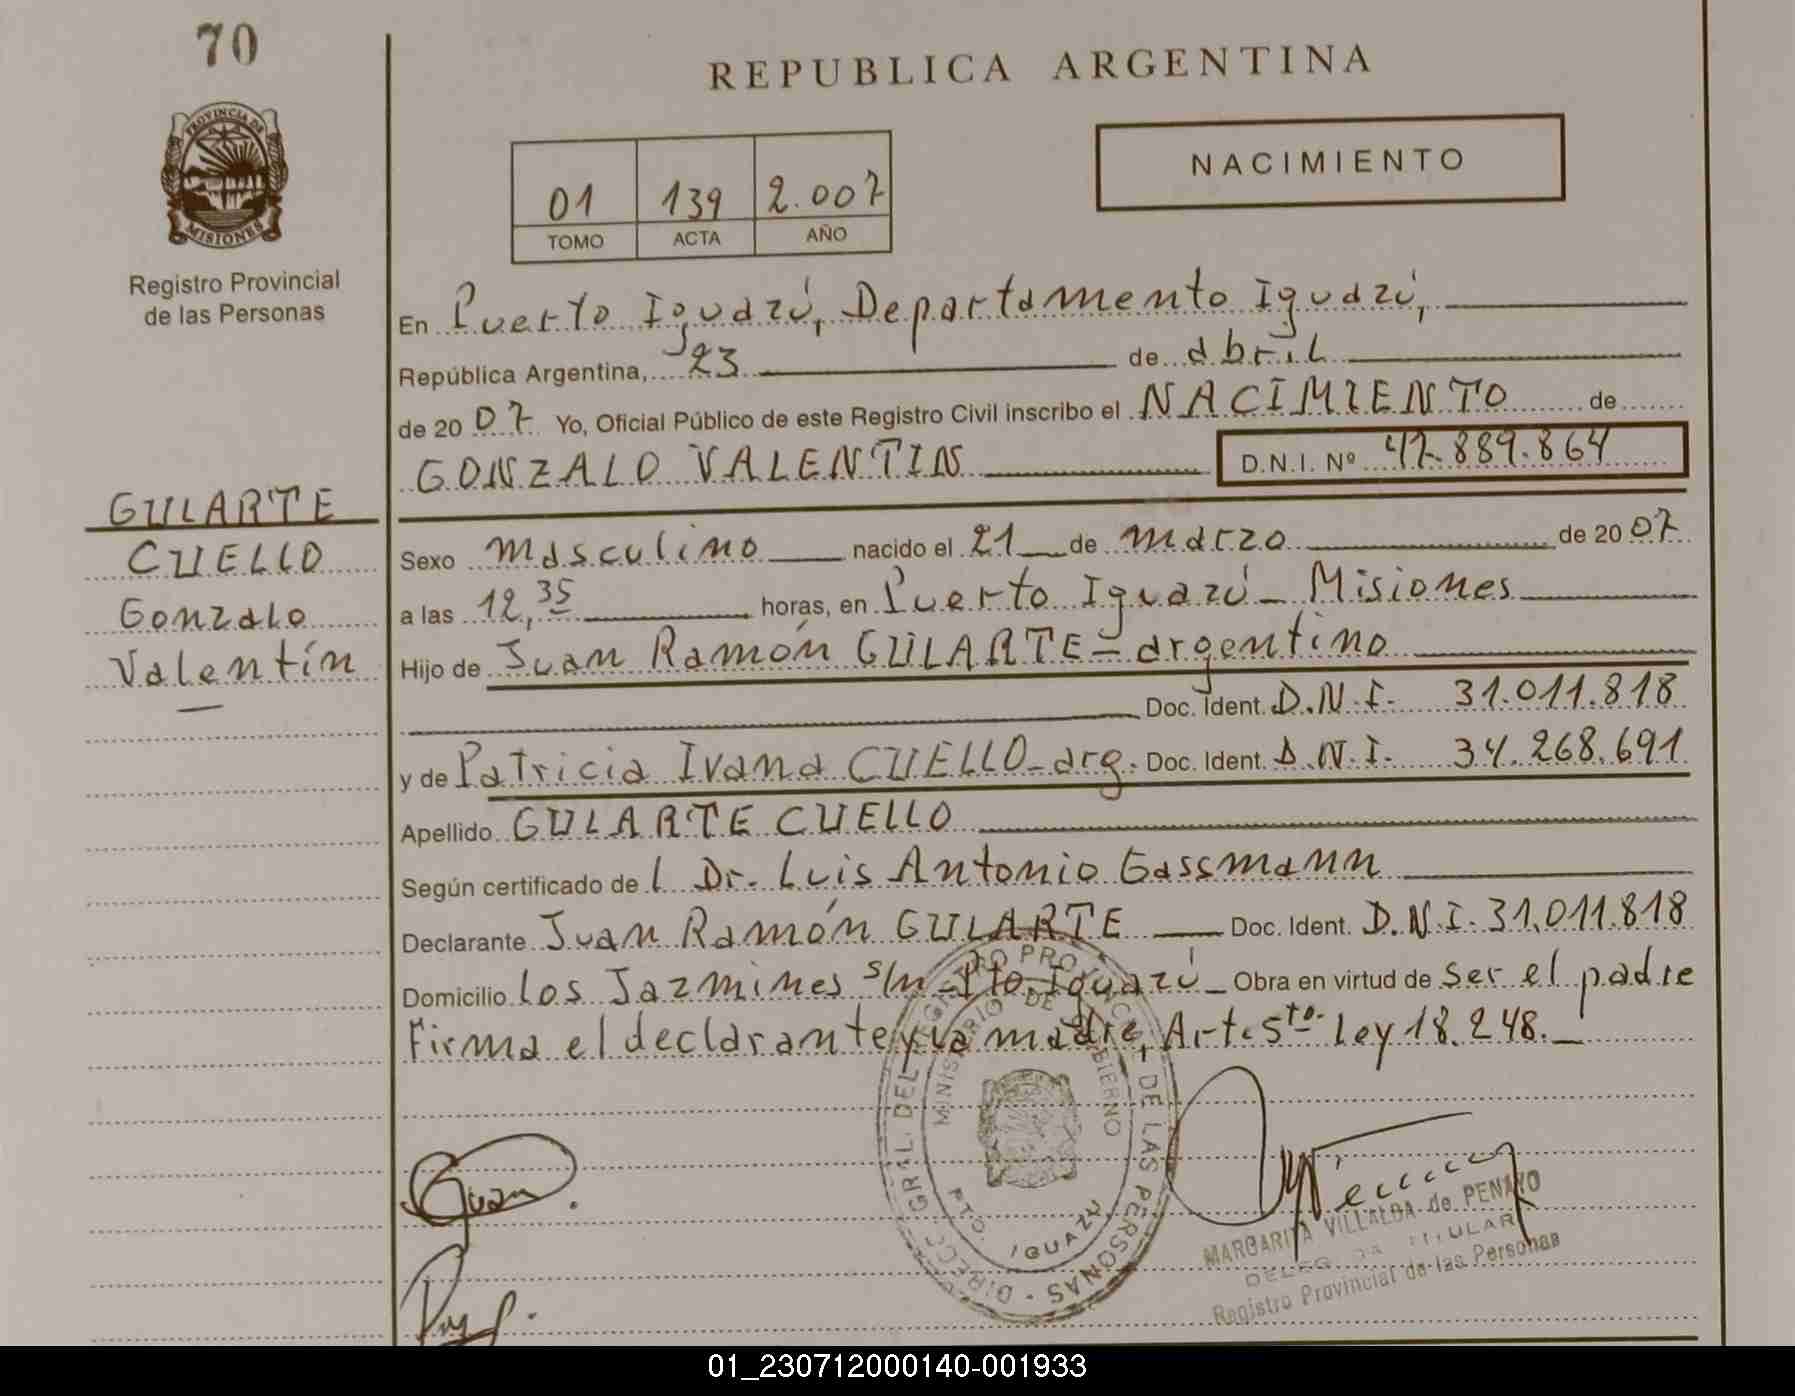 70
REPUBLICA ARGENTINA
PROVINCIA DE
MISIONES
Registro Provincial
de las Personas
NACIMIENTO
01 139 2.007
TOMO ACTA AÑO
En Puerto Iguazú, Departamento Iguazú,
República Argentina, 23 de abril
de 2007 Yo, Oficial Público de este Registro Civil inscribo el NACIMIENTO de
GONZALO VALENTIN D.N.I. Nº 47.889.864
GULARTE
CUELLO
Gonzalo
Valentín
Sexo masculino nacido el 21 de marzo de 2007
a las 12,35 horas, en Puerto Iguazú - Misiones
Hijo de Juan Ramón GULARTE - argentino
Doc. Ident. D.N.I. 31.011.818
y de Patricia Ivana CUELLO - arg. Doc. Ident. D.N.I. 34.268.691
Apellido GULARTE CUELLO
Según certificado de l Dr. Luis Antonio Gassmann
Declarante Juan Ramón GULARTE Doc. Ident. D.N.I. 31.011.818
Domicilio Los Jazmines s/n - Pto. Iguazú - Obra en virtud de ser el padre
Firma el declarante y la madre, Art. 5to. Ley 18.248. -
DIRECC. GRAL. DEL REGISTRO PROVINCIAL DE LAS PERSONAS
MINISTERIO DE GOBIERNO
PTO. IGUAZU
Juan
MARGARITA VILLALBA de PENAYO
DELEGADA TITULAR
Registro Provincial de las Personas
01_230712000140-001933